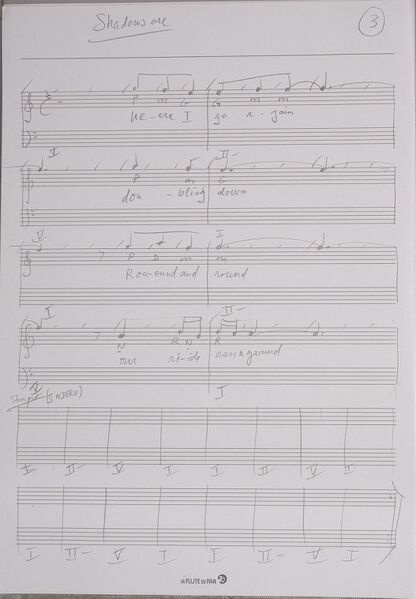 Shadows are
3
P m G G m m
he-ere I go a-gain
V II-
P m G
dou-bling down
V I
P D m m
Rou-ound and round
I II-
N R N R
our ri-ide
V I
(INSTRU)
I II- V I I II- V I
I II- V I I II- V I
LA FLUTE DE PAN